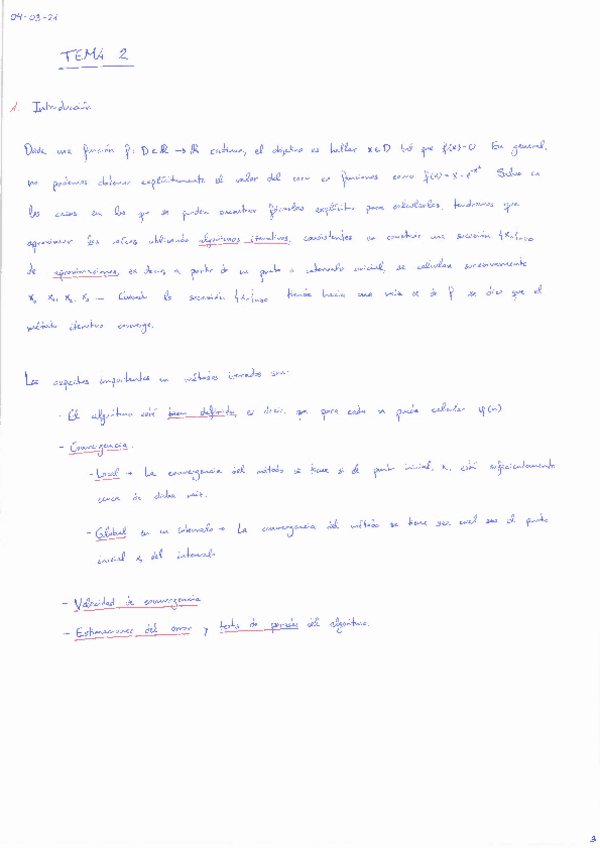 04-03-21
TEMA 2
1. Introducción
Dada una función f: D∈ℝ → ℝ continua, el objetivo es hallar x∈D tal que f(x)=0 En general,
no podemos obtener explícitamente el valor del cero en funciones como f(x)=x-e^-x² Salvo en
los casos en los que se pueden encontrar fórmulas explícitas para calcularlos, tendremos que
aproximar las raíces utilizando algoritmos iterativos, consistentes en construir una sucesión {xn}n≥0
de aproximaciones, es decir, a partir de un punto o intervalo inicial, se calculan sucesivamente
x0, x1, x2, x3 ... Cuando la sucesión {xn}n≥0 tiende hacia una raíz de f se dice que el
método iterativo converge.
Los aspectos importantes en métodos iterados son:
- El algoritmo esté bien definido, es decir, que para cada n pueda calcular φ(n)
- Convergencia.
- Local → La convergencia del método se tiene si de punto inicial, x0 está suficientemente
cerca de dicha raíz.
- Global en un intervalo → La convergencia del método se tiene sea cual sea el punto
inicial x0 del intervalo
- Velocidad de convergencia
- Estimaciones del error y tests de parada del algoritmo.
3